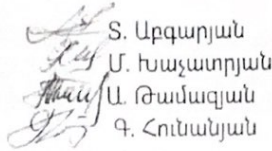 Տ. Աբգարյան
Մ. Խաչատրյան
Ա. Թամազյան
Գ. Հունանյան